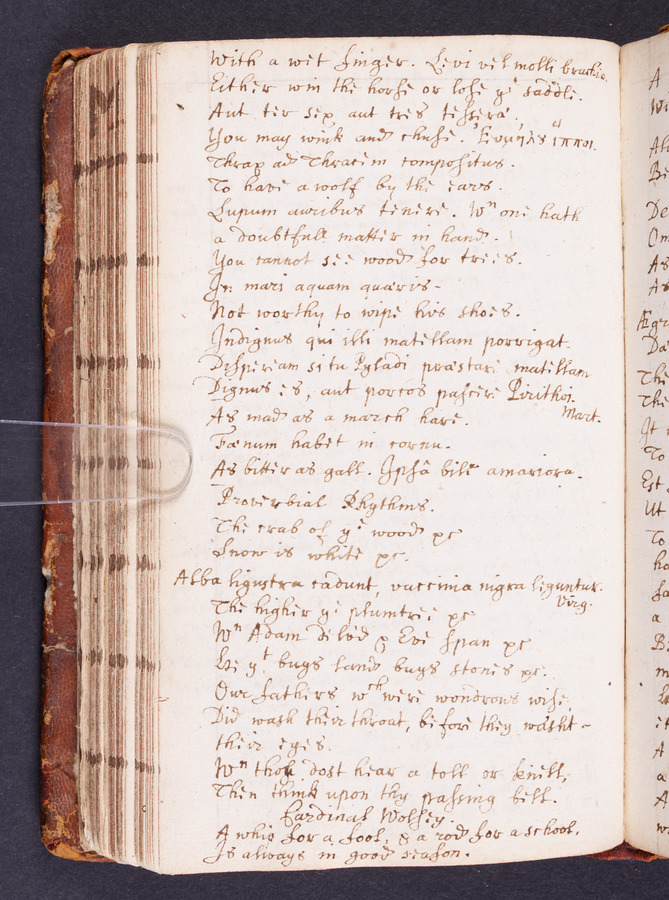 With a wet finger. Levi vel molli brachio.
Either win the horse or lose ye saddle.
Aut ter sex, aut tres tesserae.
You may wink and chuse. Ἐυγηρὲς ἵπποι.
Thrax ad Thracem compositus.
To have a wolf by the ears.
Lupum auribus tenere. Wn one hath
a doubtfull matter in hand.
You cannot see wood for trees.
In mari aquam quaeris-
Not worthy to wipe his shoes.
Indignus qui illi matellam porrigat.
Dispeream si tu Pyladi praestare matellam
Dignus es, aut porcos pascere Pirithoi.
Mart.
As mad as a march hare.
Fœnum habet in cornu.
As bitter as gall. Ipsâ bile amariora.
Proverbial Rhythms.
The crab of ye wood &c
Snow is white &c.
Alba ligustra cadunt, vaccinia nigra leguntur.
Virg.
The higher ye plumtree &c
Wn Adam delved & Eve span &c
He yt buys land buys stones &c.
Our fathers wch were wondrous wise,
Did wash their throat, before they washt-
their eyes.
Wn thou dost hear a toll or knell,
Then think upon thy passing bell.
Cardinal Wolsey.
A whip for a fool, & a rod for a school,
Is always in good season.